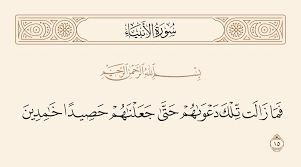 سُورَةُ الأَنْبِيَاءِ
بِسْمِ اللَّهِ الرَّحْمَٰنِ الرَّحِيمِ
فَمَا زَالَت تِّلْكَ دَعْوَىٰهُمْ حَتَّىٰ جَعَلْنَٰهُمْ حَصِيدًا خَٰمِدِينَ
١٥